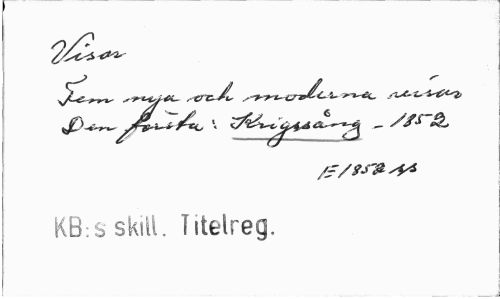 Visor
Fem nya och moderna visor
Den första: Krigssång - 1852
E 1852 ss
KB:s skill. Titelreg.